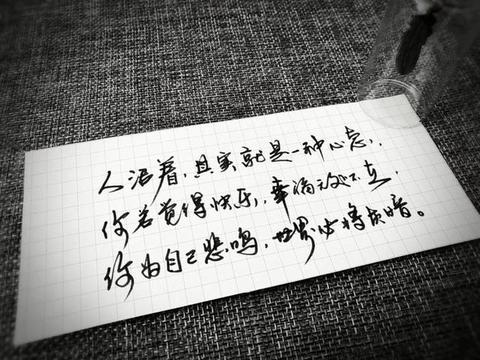 人活着，其实就是一种心态，
你若觉得快乐，幸福无处不在，
你为自己悲鸣，世界必将灰暗。